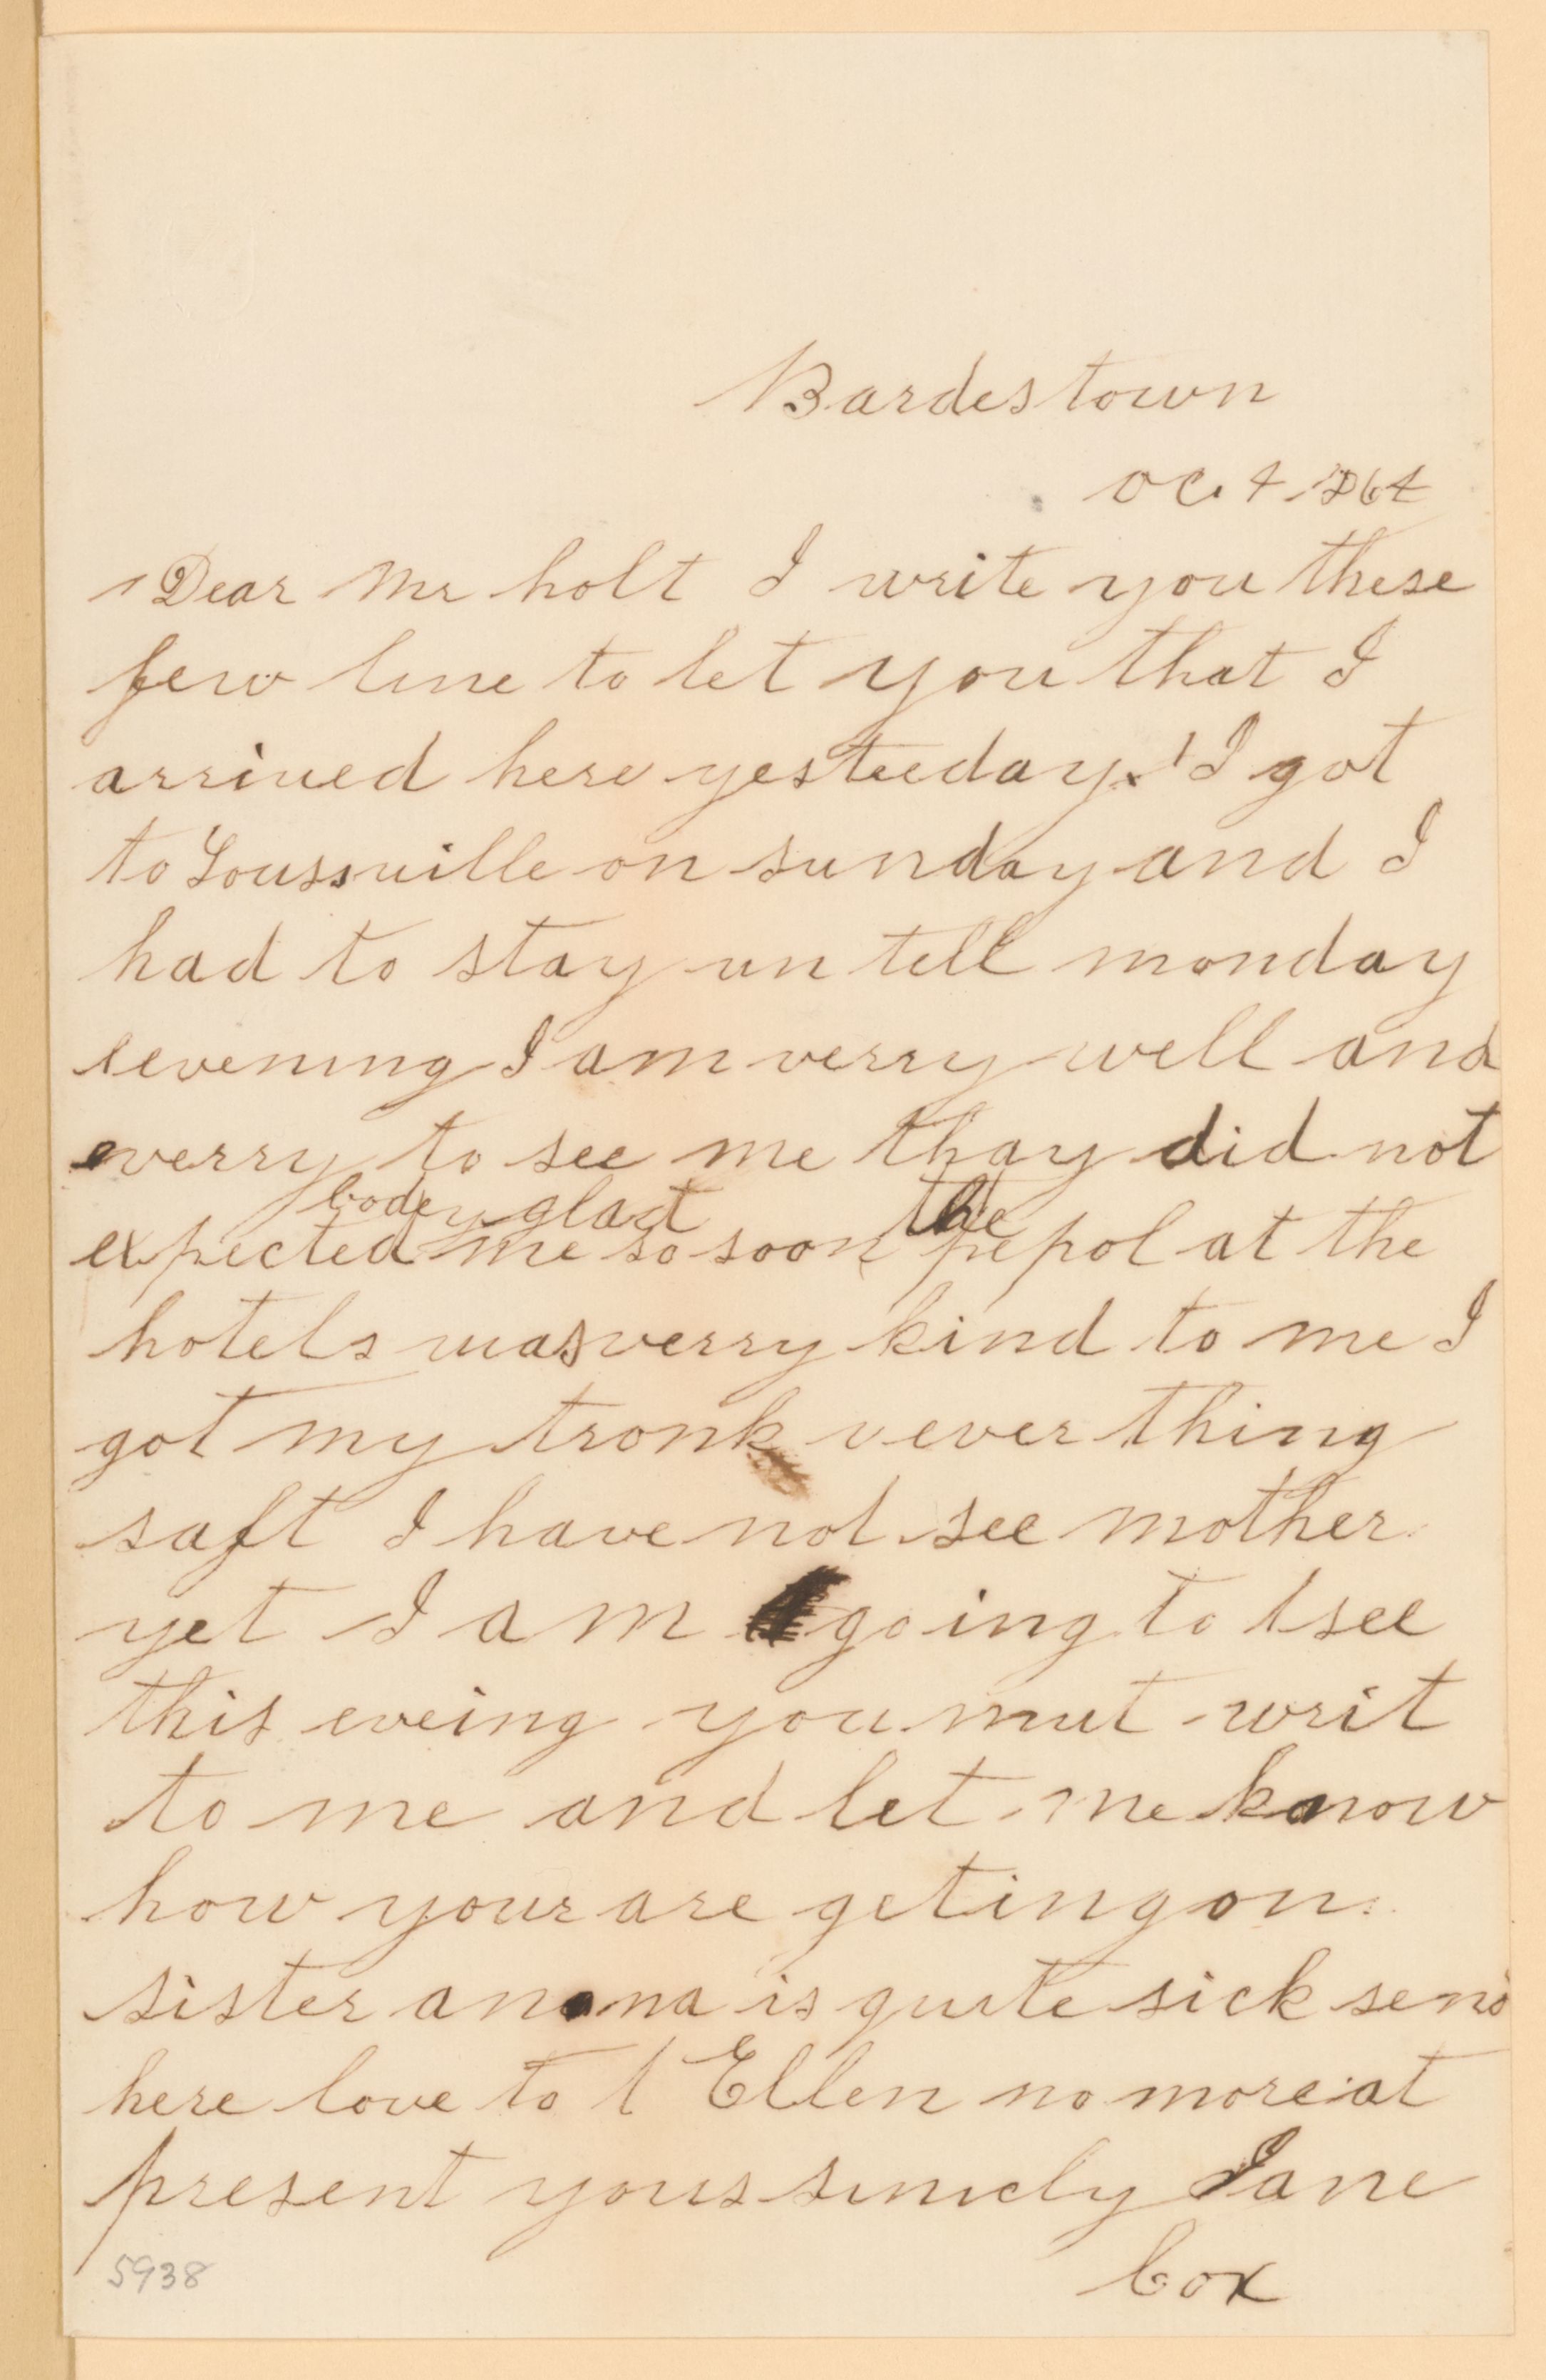 Bardestown
Oct. 4 1864
Dear Mr holt I write you these
few line to let you that I
arrived here yesteeday. I got
to Loussville on sunday and I
had to stay un tell monday
evening I am verry well and
everry to see me thay did not
bodey glad the
expected me so soon pepol at the
hotels was verry kind to me I
got my tronk ever thing
saft I have not see mother
yet I am going to see
this eveing you mut writ
to me and let me know
how your are geting on.
sister anna is quite sick send
here love to Ellen no more at
present yours sinicly Jane
Cox
5938